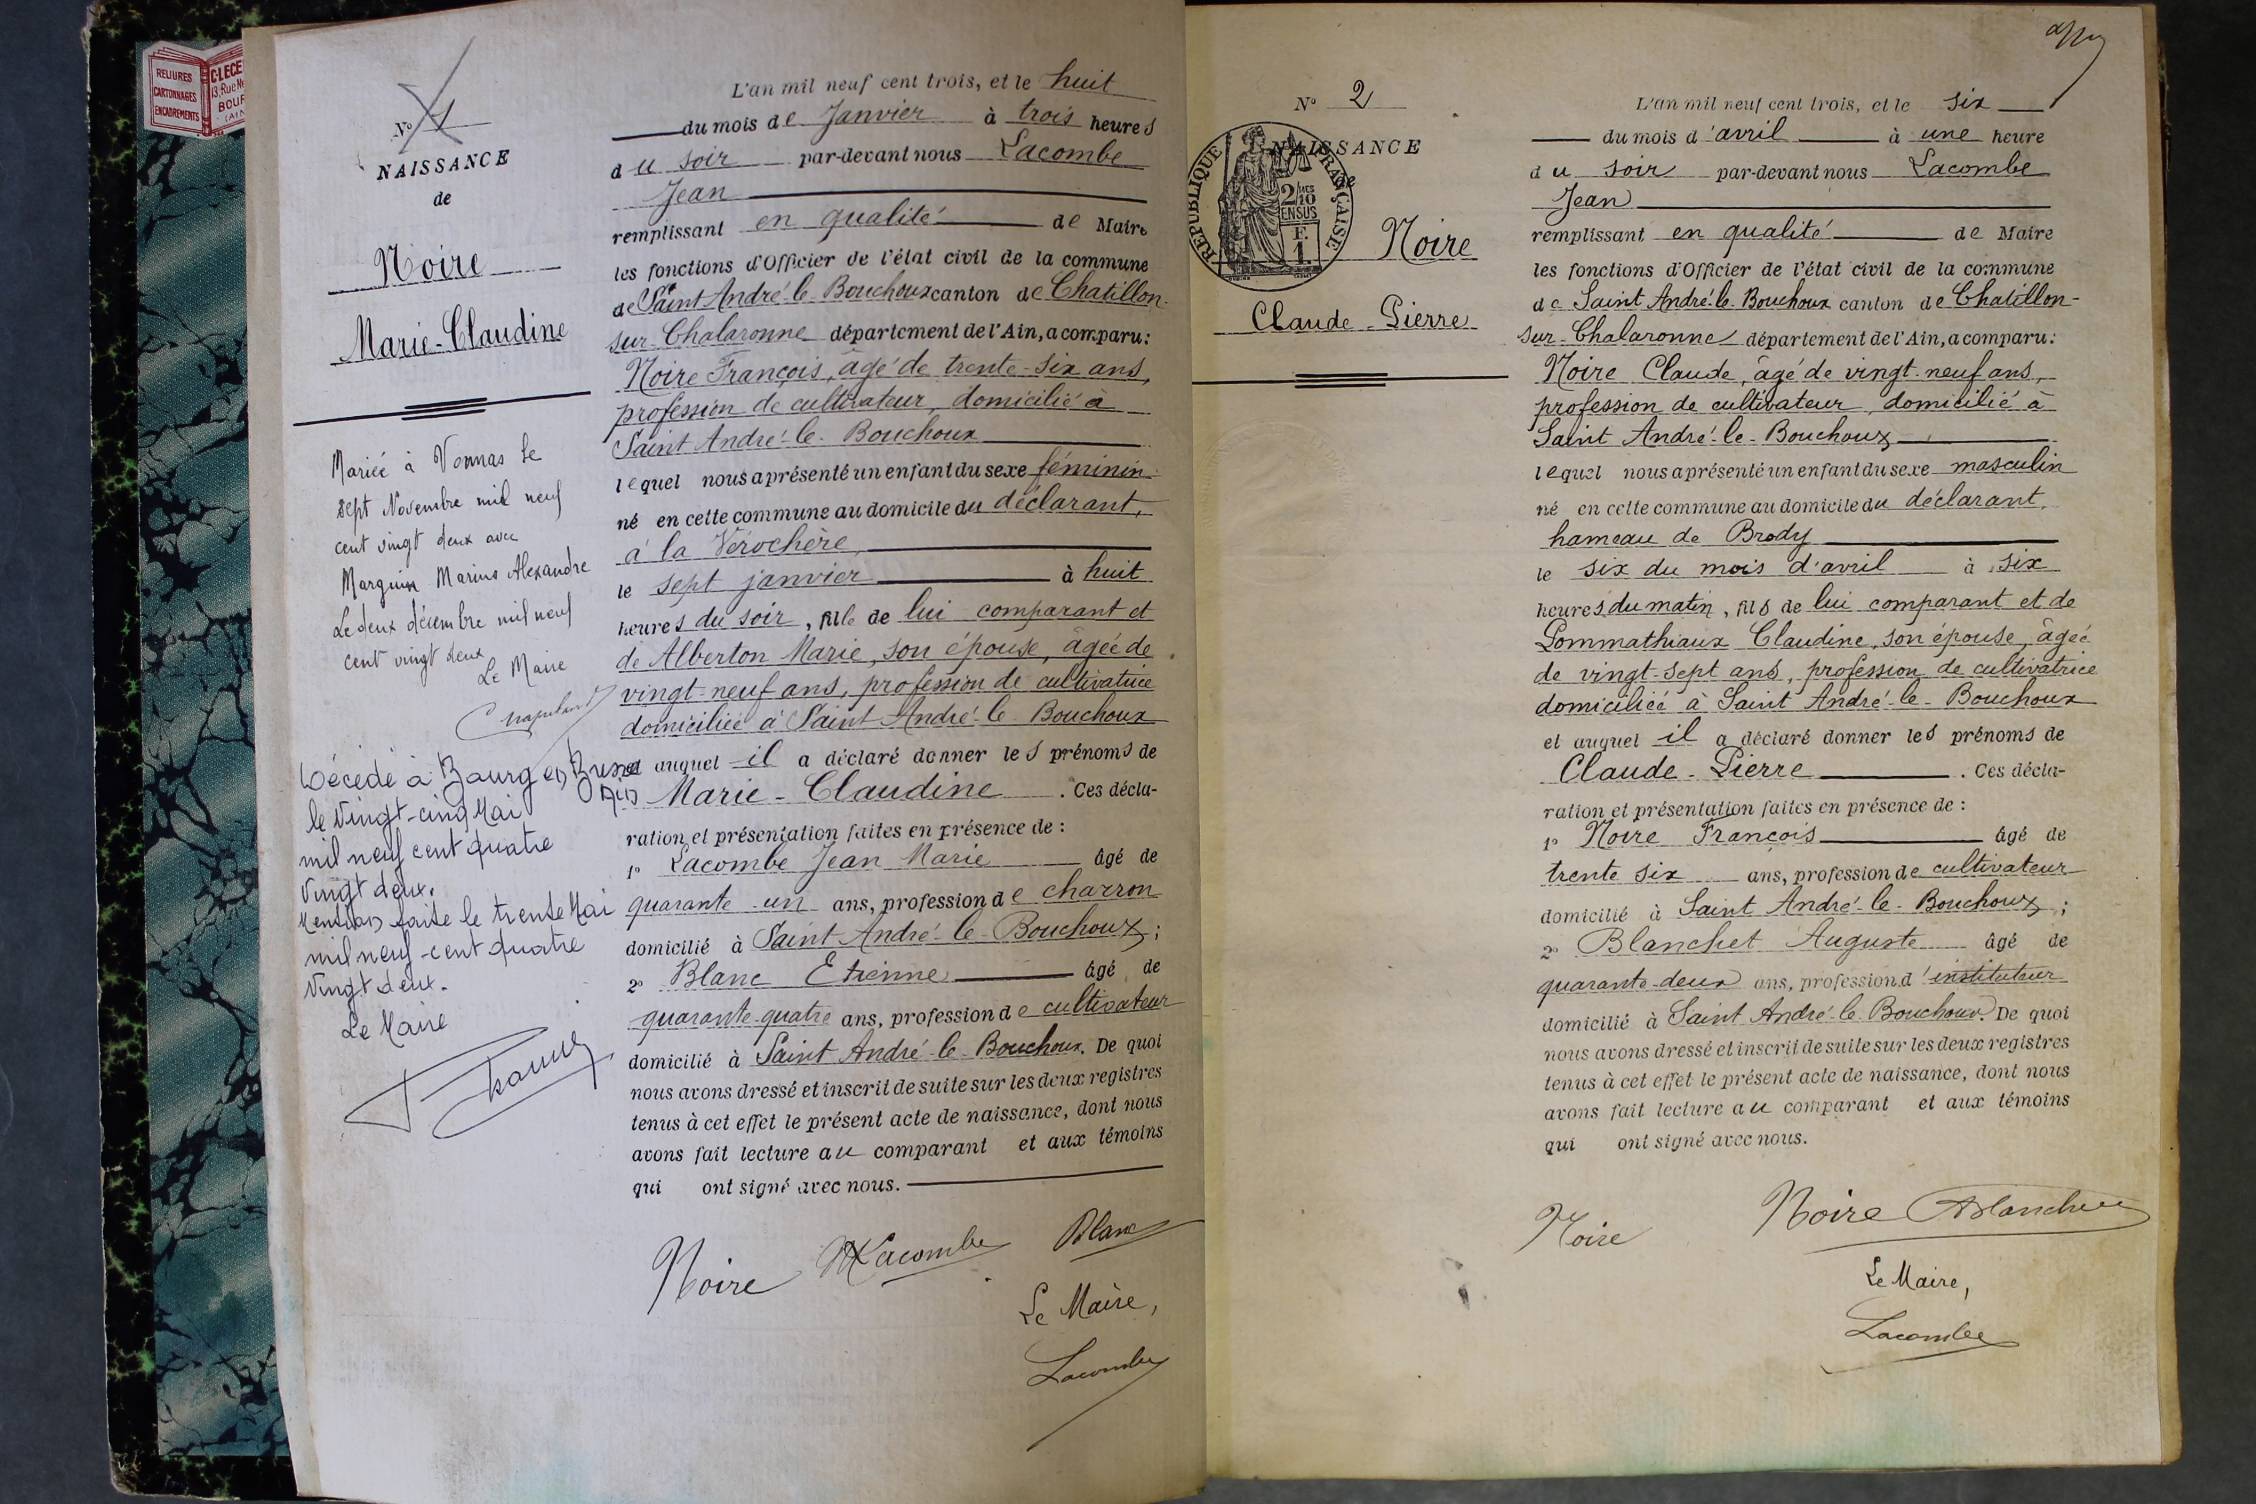 RELIURES
CARTONNAGES
ENCADREMENTS
C. LECE
13, Rue
BOUR
(AIN
N° 1
NAISSANCE
de
Noire
Marie-Claudine
Mariée à Vonnas le
sept Novembre mil neuf
cent vingt deux avec
Marguin Marius Alexandre
Le deux décembre mil neuf
cent vingt deux
Le Maire
Décédé à Bourg en Bresse
Ain
le vingt-cinq Mai
mil neuf cent quatre
vingt deux.
Mention faite le trente Mai
mil neuf-cent quatre
vingt deux.
Le Maire
L'an mil neuf cent trois, et le huit
du mois de Janvier à trois heures
du soir par-devant nous Lacombe
Jean
remplissant en qualité de Maire
les fonctions d'Officier de l'état civil de la commune
de Saint André-le-Bouchoux canton de Chatillon-
sur-Chalaronne département de l'Ain, a comparu:
Noire François, âgé de trente-six ans,
profession de cultivateur, domicilié à
Saint André-le-Bouchoux
lequel nous a présenté un enfant du sexe féminin
né en cette commune au domicile du déclarant,
à la Vérochère,
le sept janvier à huit
heures du soir, fille de lui comparant et
de Alberton Marie, son épouse, âgée de
vingt-neuf ans, profession de cultivatrice
domiciliée à Saint André-le-Bouchoux
et auquel il a déclaré donner les prénoms de
Marie-Claudine. Ces décla-
ration et présentation faites en présence de :
1° Lacombe Jean Marie âgé de
quarante-un ans, profession de charron
domicilié à Saint André-le-Bouchoux;
2° Blanc Etienne âgé de
quarante-quatre ans, profession de cultivateur
domicilié à Saint André-le-Bouchoux. De quoi
nous avons dressé et inscrit de suite sur les deux registres
tenus à cet effet le présent acte de naissance, dont nous
avons fait lecture au comparant et aux témoins
qui ont signé avec nous.
Noire Lacombe Blanc
Le Maire,
Lacombe
N° 2
NAISSANCE
de
REPUBLIQUE FRANÇAISE
2/10 MES
EN SUS
F.
1
Noire
Claude-Pierre
L'an mil neuf cent trois, et le six
du mois d'avril à une heure
du soir par-devant nous Lacombe
Jean
remplissant en qualité de Maire
les fonctions d'Officier de l'état civil de la commune
de Saint André-le-Bouchoux canton de Chatillon-
sur-Chalaronne département de l'Ain, a comparu:
Noire Claude, âgé de vingt-neuf ans,
profession de cultivateur, domicilié à
Saint André-le-Bouchoux
lequel nous a présenté un enfant du sexe masculin
né en cette commune au domicile du déclarant,
hameau de Brody
le six du mois d'avril à six
heures du matin, fils de lui comparant et de
Pommathiaux Claudine, son épouse, âgée
de vingt-sept ans, profession de cultivatrice
domiciliée à Saint André-le-Bouchoux
et auquel il a déclaré donner les prénoms de
Claude-Pierre. Ces décla-
ration et présentation faites en présence de :
1° Noire François âgé de
trente six ans, profession de cultivateur
domicilié à Saint André-le-Bouchoux;
2° Blanchet Auguste âgé de
quarante-deux ans, profession d'instituteur
domicilié à Saint André-le-Bouchoux. De quoi
nous avons dressé et inscrit de suite sur les deux registres
tenus à cet effet le présent acte de naissance, dont nous
avons fait lecture au comparant et aux témoins
qui ont signé avec nous.
Noire Noire ABlanchet
Le Maire,
Lacombe